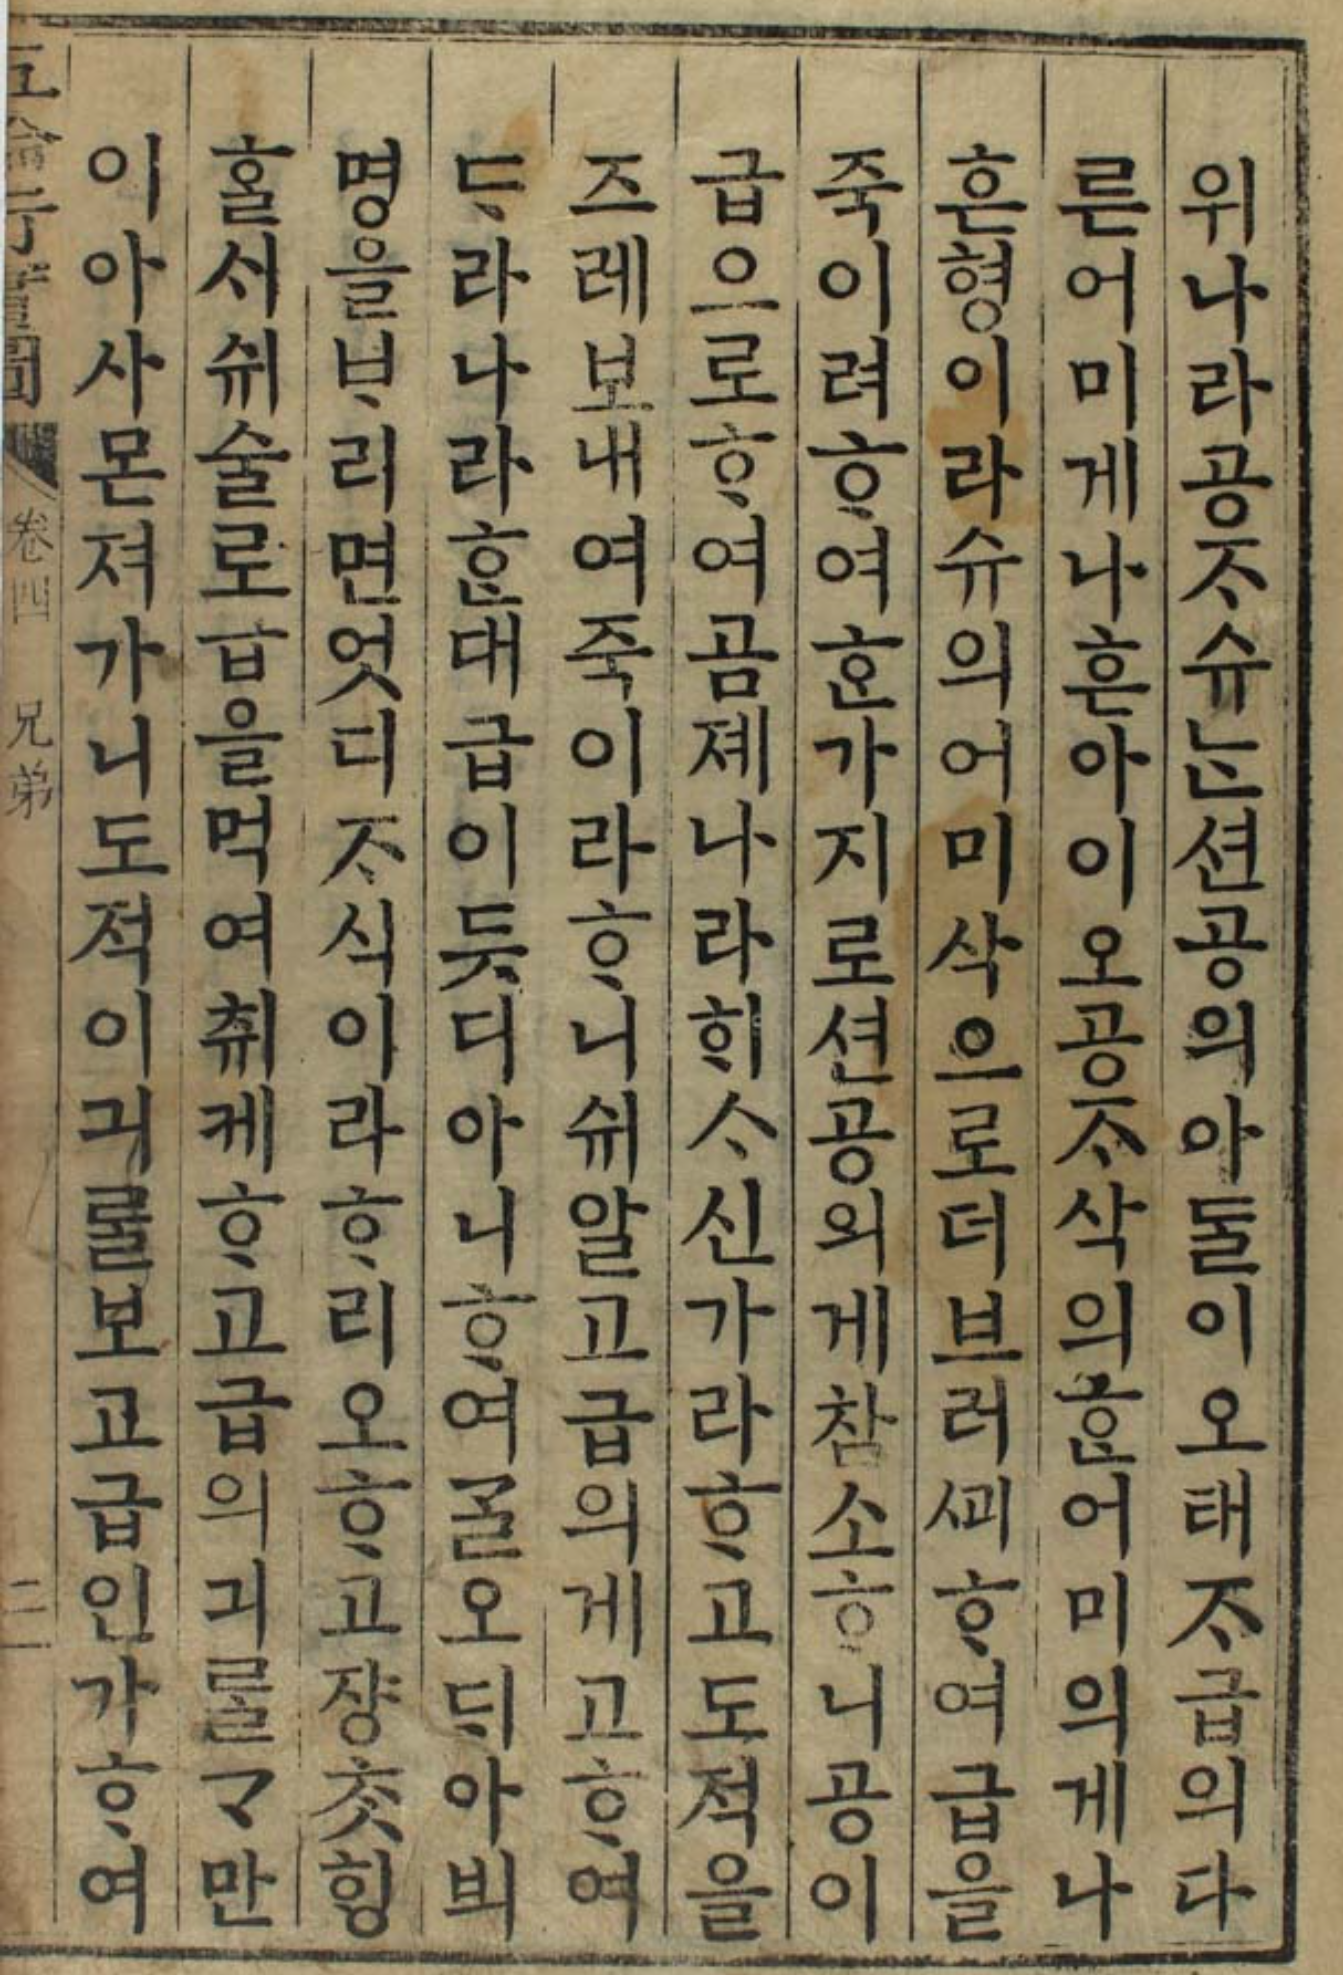 위나라공ᄌᆞ슈ᄂᆞᆫ션공의아ᄃᆞᆯ이오태ᄌᆞ급의다
른어미게나흔아이오공ᄌᆞ삭의ᄒᆞᆫ어미의게나
흔형이라슈의어미삭으로더브러ᄭᅬᄒᆞ여급을
죽이려ᄒᆞ여ᄒᆞᆫ가지로션공의게참소ᄒᆞ니공이
급으로ᄒᆞ여곰졔나라ᄒᆡᄉᆞ신가라ᄒᆞ고도적을
즈레보내여죽이라ᄒᆞ니쉬알고급의게고ᄒᆞ여
ᄃᆞ라나라ᄒᆞᆫ대급이듯디아니ᄒᆞ여ᄀᆞᆯ오ᄃᆡ아븨
명을ᄇᆞ리면엇디ᄌᆞ식이라ᄒᆞ리오ᄒᆞ고쟝ᄎᆞᆺᄒᆡᆼ
ᄒᆞᆯ서쉬술로급을먹여취케ᄒᆞ고급의긔를ᄀᆞ만
이아사몬져가니도적이긔ᄅᆞᆯ보고급인가ᄒᆞ여
五倫行實圖 卷四 兄弟 二